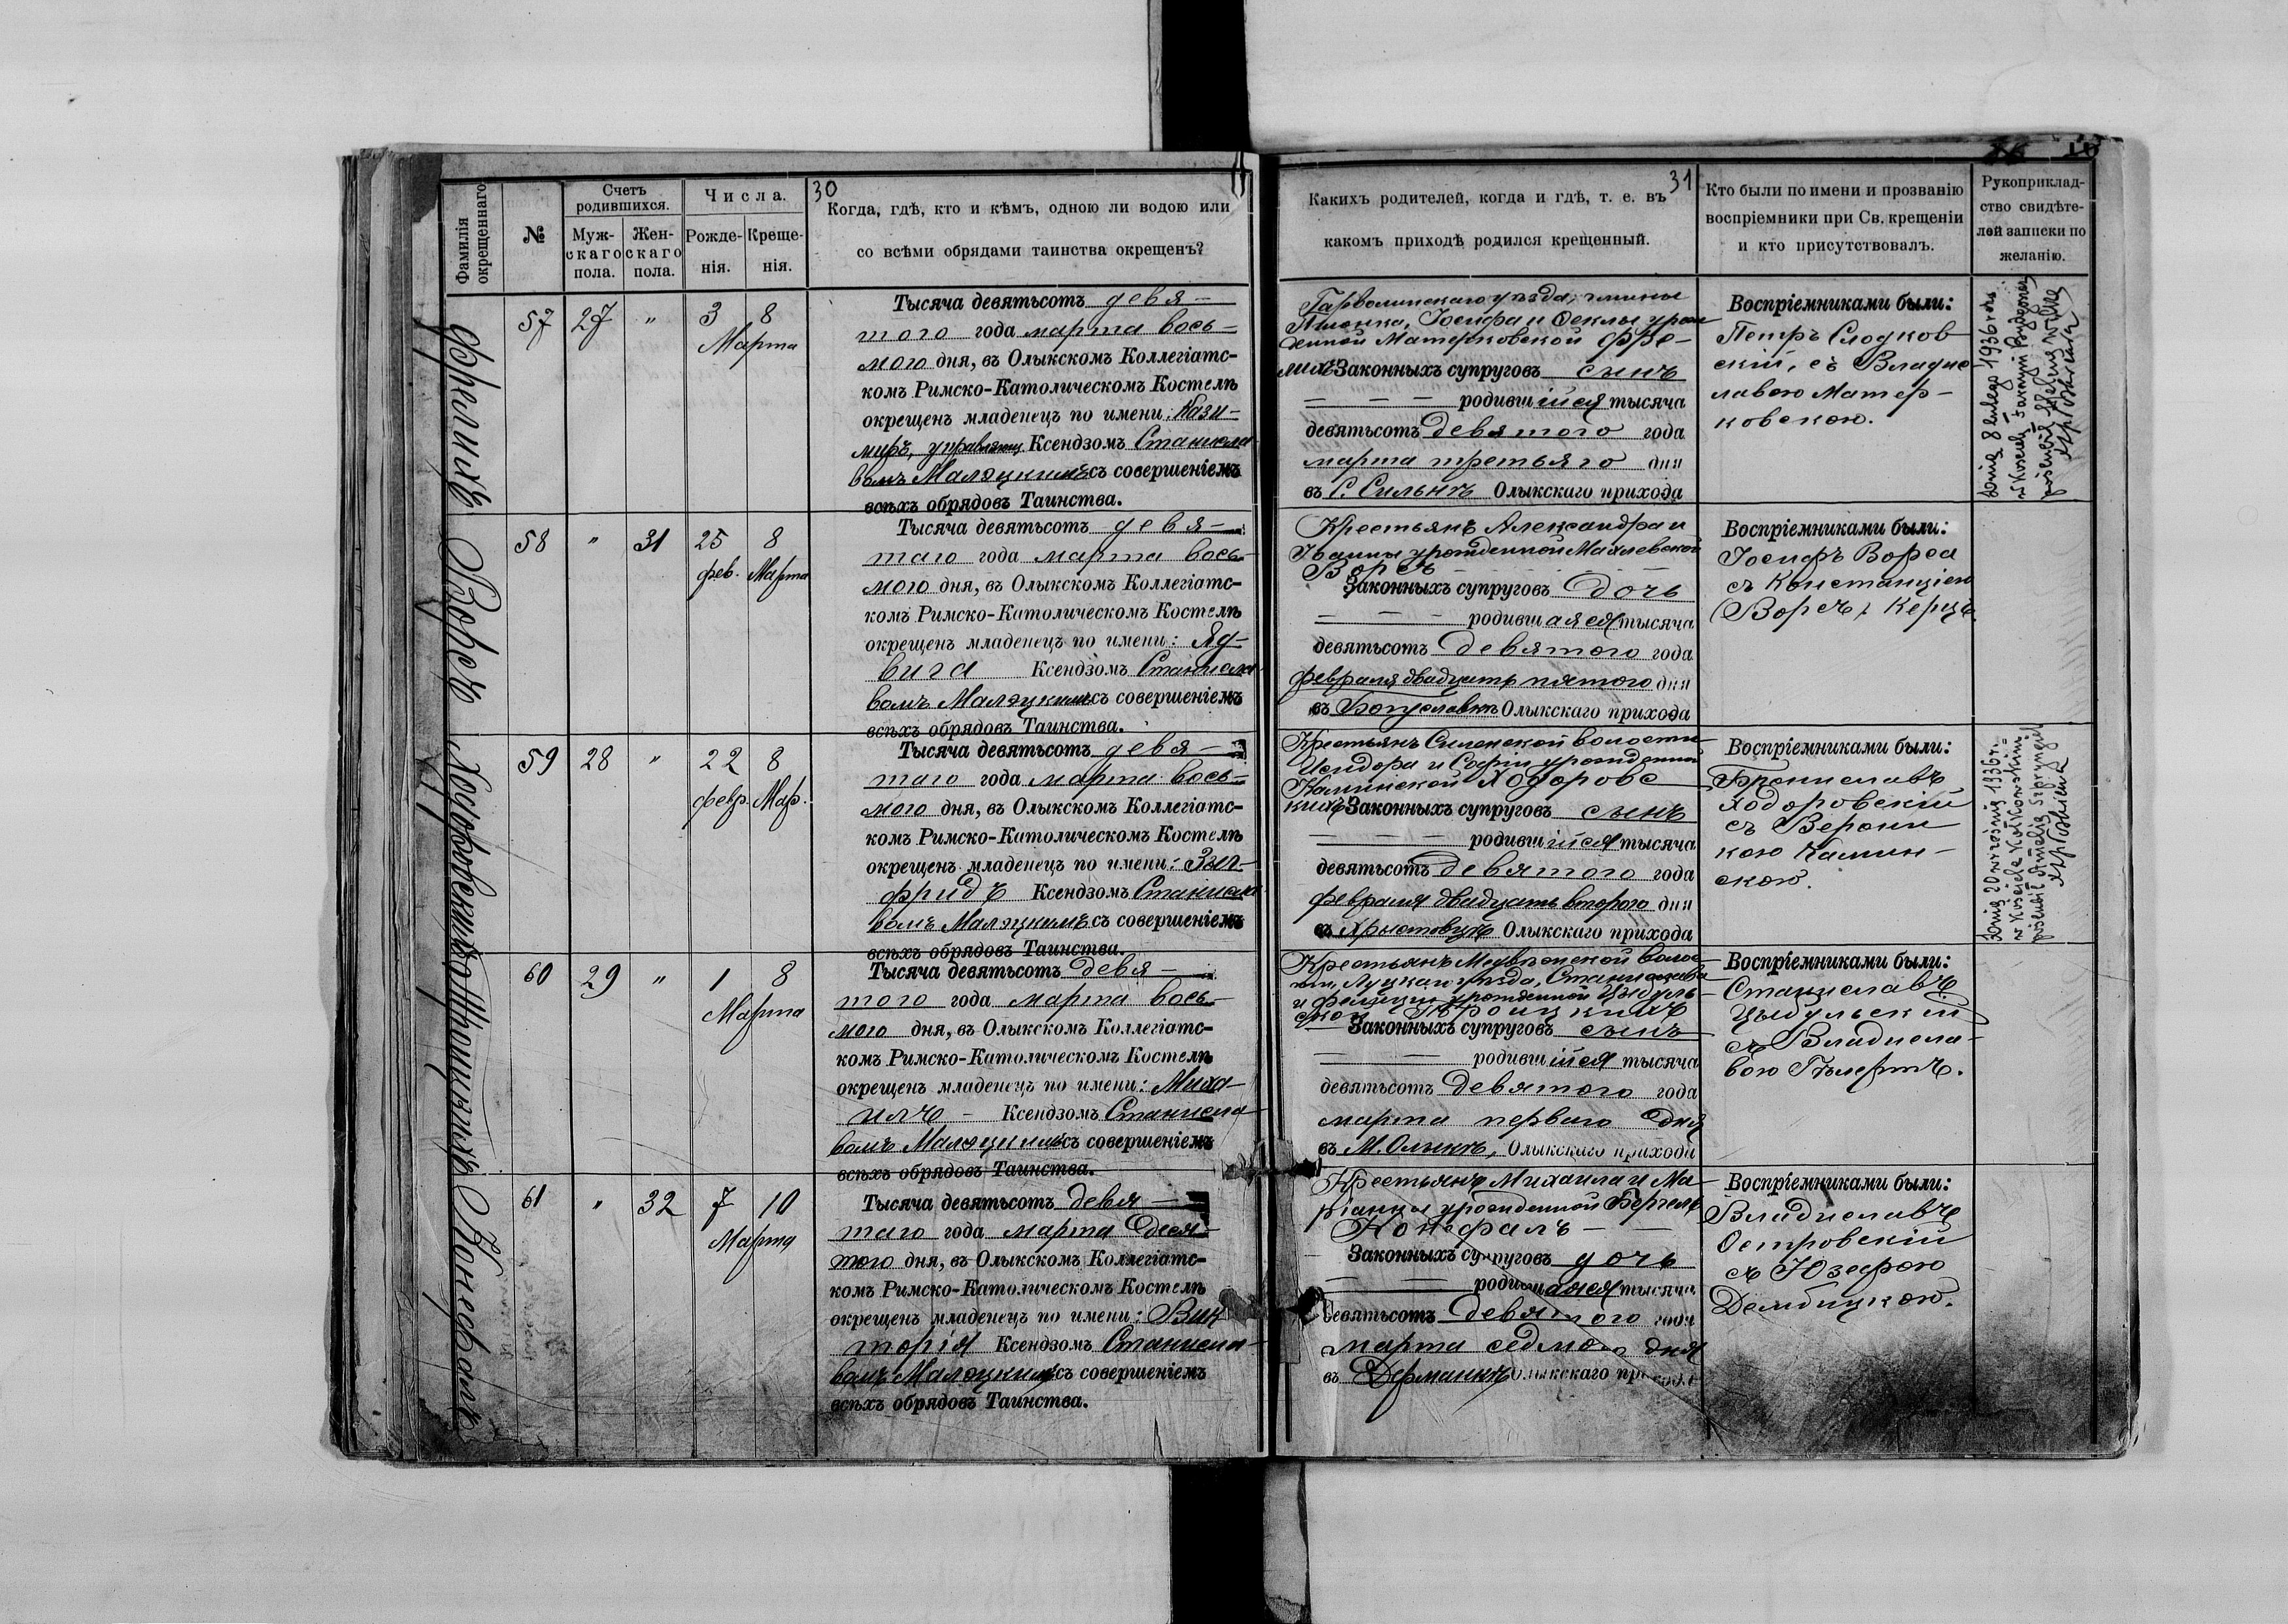 30
Фамилія окрещеннаго
№
Счетъ родившихся.
Муж-
скаго
пола.
Жен-
скаго
пола.
Числа.
Рожде-
нія.
Креще-
нія.
Когда, гдѣ, кто и кѣмъ, одною ли водою или
со всѣми обрядами таинства окрещенъ?
57 27 " 3 8
Марта
Тысяча девятьсотъ девя-
того года марта вось-
мого дня, въ Олыкскомъ Коллегіатс-
комъ Римско-Католическомъ Костелѣ
окрещенъ младенецъ по имени: Кази-
миръ, Ксендзомъ Станисла
вомъ Малэцкимъ съ совершеніемъ
всѣхъ обрядовъ Таинства.
Ворсъ
58 " 31 25 8
фев. Марта
Тысяча девятьсотъ девя-
таго года марта вось-
мого дня, въ Олыкскомъ Коллегіатс-
комъ Римско-Католическомъ Костелѣ
окрещенъ младенецъ по имени: Яд-
вига Ксендзомъ Станисла
вомъ Малэцкимъ съ совершеніемъ
всѣхъ обрядовъ Таинства.
59 28 " 22 8
февр. Мар.
Тысяча девятьсотъ девя-
таго года марта вось-
мого дня, въ Олыкскомъ Коллегіатс-
комъ Римско-Католическомъ Костелѣ
окрещенъ младенецъ по имени: Зыг-
фридъ Ксендзомъ Станисла
вомъ Малэцкимъ съ совершеніемъ
всѣхъ обрядовъ Таинства.
60 29 " 1 8
Марта
Тысяча девятьсотъ девя-
того года марта вось-
мого дня, въ Олыкскомъ Коллегіатс-
комъ Римско-Католическомъ Костелѣ
окрещенъ младенецъ по имени: Миха-
илъ - Ксендзомъ Станисла-
вомъ Малэцкимъ съ совершеніемъ
всѣхъ обрядовъ Таинства.
Нонефалъ
61 " 32 7 10
Марта
Тысяча девятьсотъ девя-
таго года марта деся-
того дня, въ Олыкскомъ Коллегіатс-
комъ Римско-Католическомъ Костелѣ
окрещенъ младенецъ по имени: Вик
торія Ксендзомъ Станисла-
вомъ Малэцкимъ съ совершеніемъ
всѣхъ обрядовъ Таинства.
31
Какихъ родителей, когда и гдѣ, т. е. въ
какомъ приходѣ родился крещенный.
Кто были по имени и прозванію
воспріемники при Св. крещеніи
и кто присутствовалъ.
Рукоприклад-
ство свидѣте-
лей записки по
желанію.
Гарволинскаго уѣзда, гмины
Іосифа и Феклы урож
денной Матерковской Фре-
Законныхъ супруговъ сынъ
родившійся тысяча
девятьсотъ девятого года
марта третьяго дня
въ С. Сильнѣ Олыкскаго прихода
Воспріемниками были:
Петръ Слодков-
скій, съ Владис
лавою Матер-
ковскою.
Крестьянъ Александра и
Іоанны урожденной Махлевской
Ворсъ
Законныхъ супруговъ дочь
родившаяся тысяча
девятьсотъ девятого года
февраля двадцать пятого дня
въ Богуславкѣ Олыкскаго прихода
Воспріемниками были:
Іосифъ Ворса
съ Констанціею
Ворсъ
Крестьянъ Силенской волости
Исидора и Софіи урожденной
Каминской Ходоровс
кихъ Законныхъ супруговъ сынъ
родившійся тысяча
девятьсотъ девятого года
февраля двадцать второго дня
въ Олыкскаго прихода
Воспріемниками были:
Брониславъ
Ходоровскій
съ Верони
кою Камин-
скою.
Крестьянъ волос-
ти, Луцкаго уѣзда, Станислава
и Фелиціи урожденной Цыбуль-
ской Троицкихъ
Законныхъ супруговъ сынъ
родившійся тысяча
девятьсотъ девятого года
марта перваго дня
въ М. Олыкѣ, Олыкскаго прихода
Воспріемниками были:
Станиславъ
Цыбульскій
съ Владисла-
вою
Крестьянъ Михаила и Ма-
ріанны урожденной
Нонефалъ
Законныхъ супруговъ дочь
родившаяся тысяча
девятьсотъ девятого года
марта седмого дня
въ Дерманкѣ Олыкскаго прихода
Воспріемниками были:
Владиславъ
Островскій
съ Юзефою
Дембицкою.